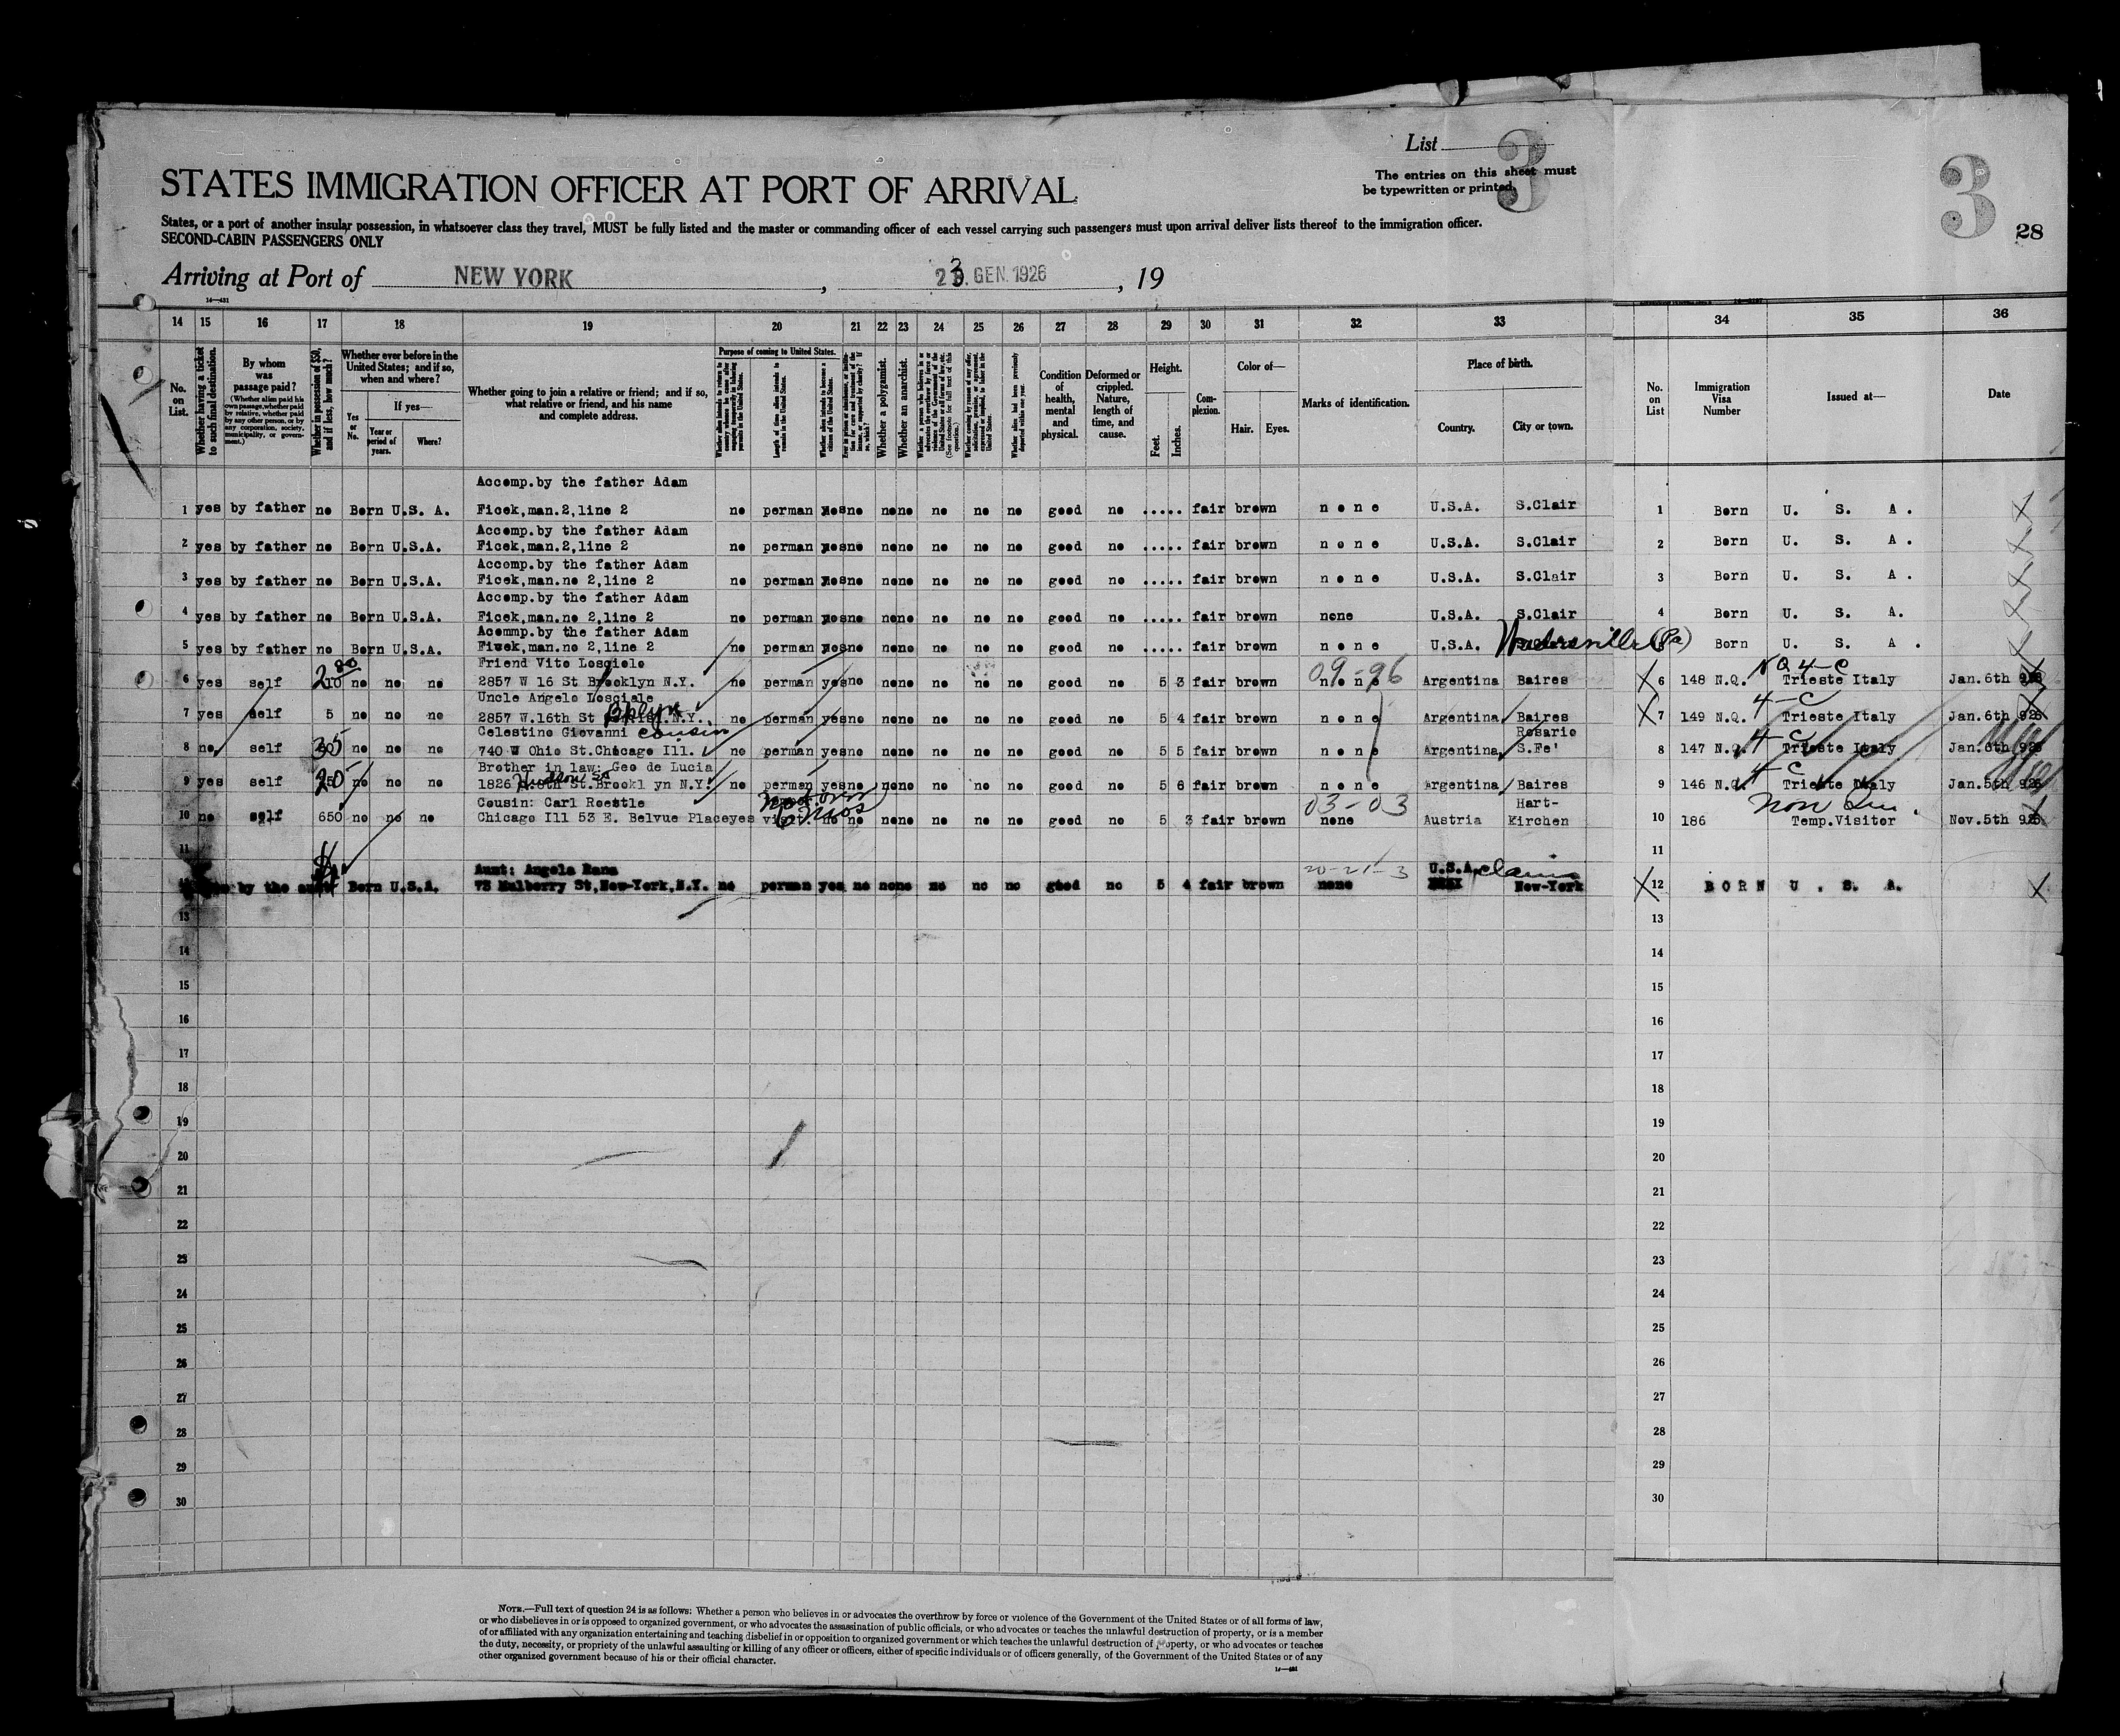 List
3
The entries on this sheet must
be typewritten or printed.
3
28
STATES IMMIGRATION OFFICER AT PORT OF ARRIVAL
States, or a port of another insular possession, in whatsoever class they travel, MUST be fully listed and the master or commanding officer of each vessel carrying such passengers must upon arrival deliver lists thereof to the immigration officer.
SECOND-CABIN PASSENGERS ONLY
Arriving at Port of NEW YORK, 23. GEN. 1926, 19
14 15 16 17 18 19 20 21 22 23 24 25 26 27 28 29 30 31 32 33 34 35 36
No. on List.
Whether having a ticket to such final destination.
By whom was passage paid?
(Whether alien paid his own passage, whether paid by relative, whether paid by any other person, or by any corporation, society, municipality, or government.)
Whether in possession of $50, and if less, how much?
Whether ever before in the United States; and if so, when and where?
Yes or No.
If yes—
Year or period of years.
Where?
Whether going to join a relative or friend; and if so, what relative or friend, and his name and complete address.
Purpose of coming to United States.
Length of time alien intends to remain in the United States.
Whether alien intends to become a citizen of the United States.
Whether a polygamist.
Whether an anarchist.
Condition of health, mental and physical.
Deformed or crippled. Nature, length of time, and cause.
Height.
Feet.
Inches.
Complexion.
Color of—
Hair.
Eyes.
Marks of identification.
Place of birth.
Country.
City or town.
No. on List
Immigration Visa Number
Issued at—
Date
Accomp.by the father Adam
1 yes by father no Born U.S. A. Ficek,man.2,line 2 no perman yes no no no no no no good no ..... fair brown none U.S.A. S.Clair 1 Born U. S. A.
Accomp.by the father Adam
2 yes by father no Born U.S.A. Ficek,man.2,line 2 no perman yes no no no no no no good no ..... fair brown none U.S.A. S.Clair 2 Born U. S. A.
Accomp.by the father Adam
3 yes by father no Born U.S.A. Ficek,man.no 2,line 2 no perman yes no no no no no no good no ..... fair brown none U.S.A. S.Clair 3 Born U. S. A.
Accomp.by the father Adam
4 yes by father no Born U.S.A. Ficek,man.no 2,line 2 no perman yes no no no no no no good no ..... fair brown none U.S.A. S.Clair 4 Born U. S. A.
Acommp.by the father Adam
5 yes by father no Born U.S.A. Ficek,man.no 2, line 2 no perman yes no no no no no no good no ..... fair brown none U.S.A. (Pa) Born U. S. A.
Friend Vito Losciole 09-96 NQ 4-C
6 yes self no no no 2857 W 16 St Brooklyn N.Y. no perman yes no no no no no no good no 5 3 fair brown none Argentina Baires 6 148 N.Q. Trieste Italy Jan.6th 926
Uncle Angelo Losciale Bklyn 4-C
7 yes self 5 no no no 2857 W.16th St N.Y. no perman yes no no no no no no good no 5 4 fair brown none Argentina Baires 7 149 N.Q. Trieste Italy Jan.6th 926
Celestino Giovanni cousin Rosario 4-C
8 no self 35 no no no 740 W Ohio St.Chicago Ill. no perman yes no no no no no no good no 5 5 fair brown none Argentina S.Fe' 8 147 N.Q. Trieste Italy Jan.6th 926
Brother in law: Geo de Lucia 4-C
9 yes self 20 no no no 1826 St.Brookl yn N.Y. no perman yes no no no no no no good no 5 6 fair brown none Argentina Baires 9 146 N.Q. Trieste Italy Jan.5th 926
Cousin: Carl Roestle not over 6 mos 03-03 Hart- non Qu.
10 no self 650 no no no Chicago Ill 53 E. Belvue Place yes visit. no no no no no no no good no 5 3 fair brown none Austria Kirchen 10 186 Temp.Visitor Nov.5th 925
11 11
Aunt: Angela Rana 20-21-3 U.S.A. claims
by the aunt Born U.S.A. 73 Mulberry St,New-York,N.Y. no perman yes no no no no no no good no 5 4 fair brown none New-York 12 BORN U. S. A.
13 13
14 14
15 15
16 16
17 17
18 18
19 19
20 20
21 21
22 22
23 23
24 24
25 25
26 26
27 27
28 28
29 29
30 30
NOTE.—Full text of question 24 is as follows: Whether a person who believes in or advocates the overthrow by force or violence of the Government of the United States or of all forms of law,
or who disbelieves in or is opposed to organized government, or who advocates the assassination of public officials, or who advocates or teaches the unlawful destruction of property, or is a member
of or affiliated with any organization entertaining and teaching disbelief in or opposition to organized government or which teaches the unlawful destruction of property, or who advocates or teaches
the duty, necessity, or propriety of the unlawful assaulting or killing of any officer or officers, either of specific individuals or of officers generally, of the Government of the United States or of any
other organized government because of his or their official character.